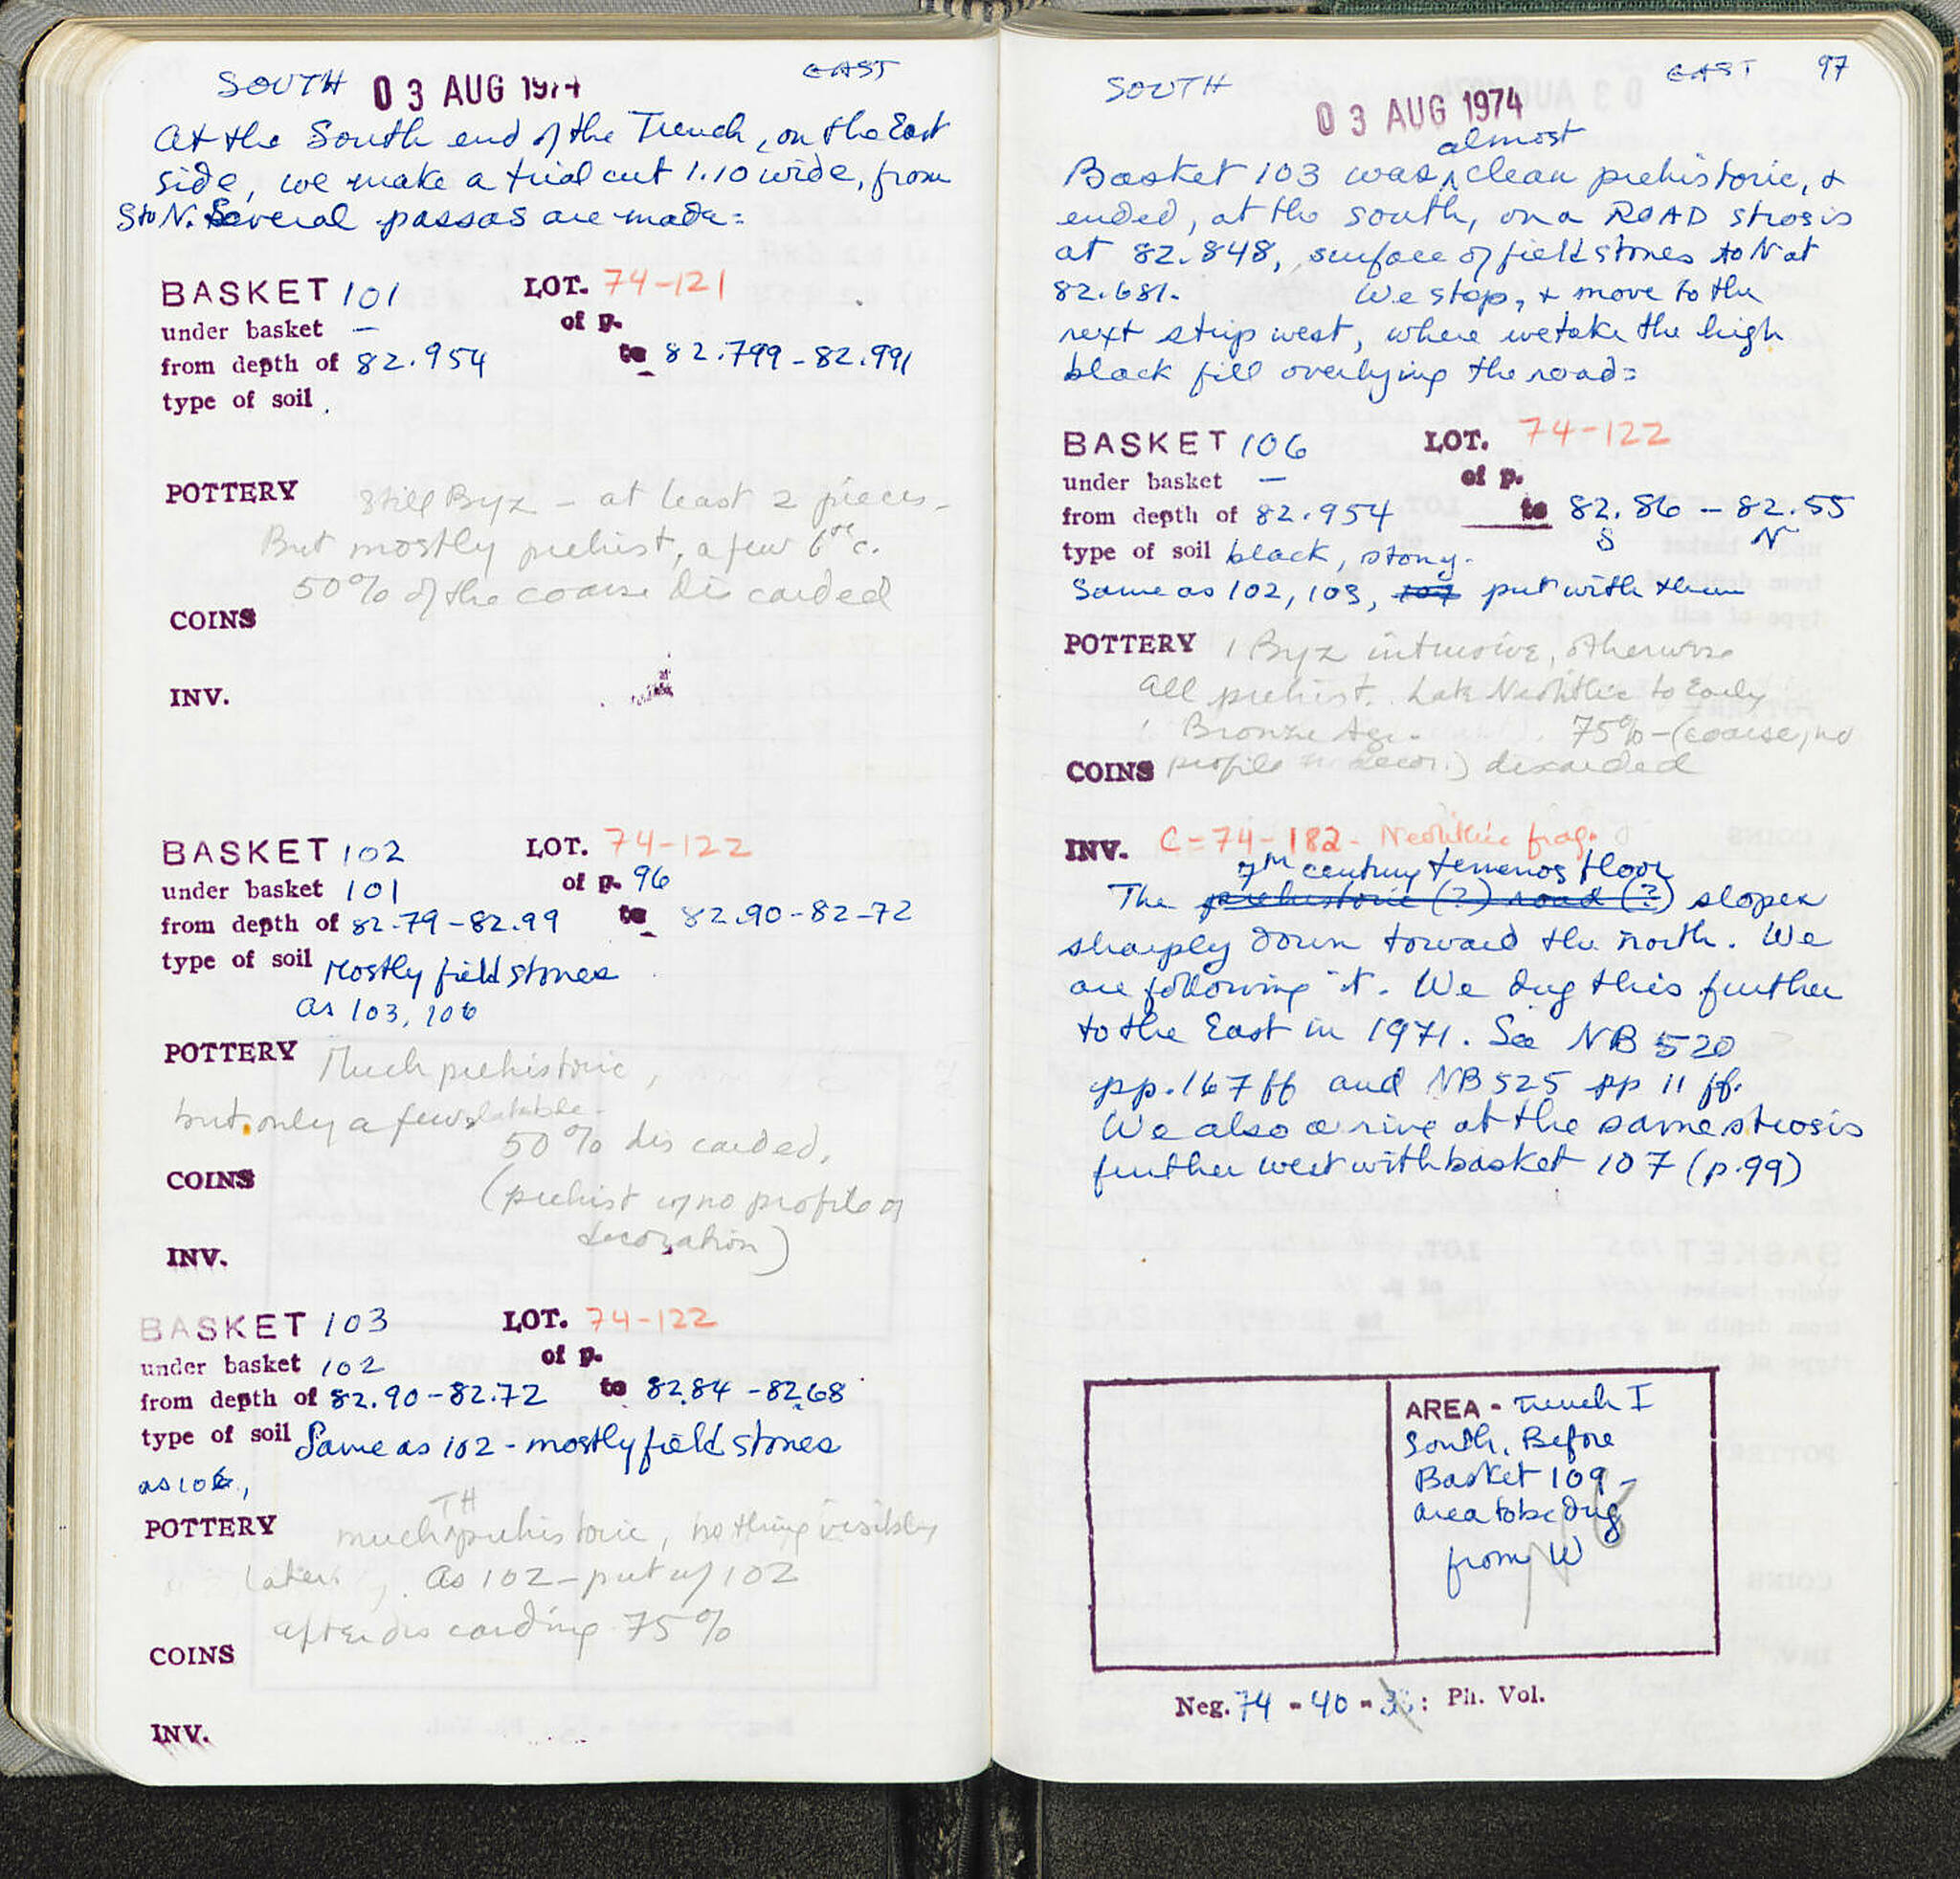 SOUTH 03 AUG 1974 EAST
At the South end of the Trench, on the East
side, we make a trial cut 1.10 wide, from
S to N. Several passas are made:
BASKET 101 LOT. 74-121
under basket — of p.
from depth of 82.954 to 82.799 - 82.991
type of soil .
POTTERY Still Byz - at least 2 pieces -
But mostly prehist, a few 6th c.
50% of the coarse discarded
COINS
INV.
BASKET 102 LOT. 74-122
under basket 101 of p. 96
from depth of 82.79 - 82.99 to 82.90 - 82-72
type of soil Mostly field stones
as 103, 106
POTTERY Much prehistoric,
but only a few datable.
50% discarded,
(prehist w/ no profile or
decoration)
COINS
INV.
BASKET 103 LOT. 74-122
under basket 102 of p.
from depth of 82.90 - 82.72 to 82.84 - 82.68
type of soil Same as 102 - mostly field stones
as 106,
POTTERY much prehistoric, nothing visibly
later. As 102 - put w/ 102
after discarding 75%
COINS
INV.
SOUTH EAST 97
03 AUG 1974
almost
Basket 103 was ^ clean prehistoric, +
ended, at the south, on a ROAD strosis
at 82.848, surface of field stones to N at
82.681. We stop, + move to the
next strip west, where we take the high
black fill overlying the road:
BASKET 106 LOT. 74-122
under basket — of p.
from depth of 82.954 to 82.86 - 82.55
S N
type of soil black, stony.
Same as 102, 103, 107 put with them
POTTERY 1 Byz intrusive, otherwise
all prehist. Late Neolithic to Early
Bronze Age. 75% - (coarse, no
COINS profile or decor.) discarded
INV. C-74-182 - Neolithic frag.
7th century temenos floor
The prehistoric (?) road (?) slopes
sharply down toward the north. We
are following it. We dug this further
to the East in 1971. See NB 520
pp. 167 ff and NB 525 pp 11 ff.
We also arrive at the same strosis
further west with basket 107 (p. 99)
AREA - Trench I
South. Before
Basket 109 -
area to be dug
from W
N
Neg. 74 - 40 - : Ph. Vol.